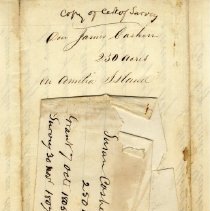 Copy of Cert of Survey
Don James Cashen
250 acres
on Amelia Island
Susan Cashe
250
Grant 7 Oct
Survey 30 Nov 1807